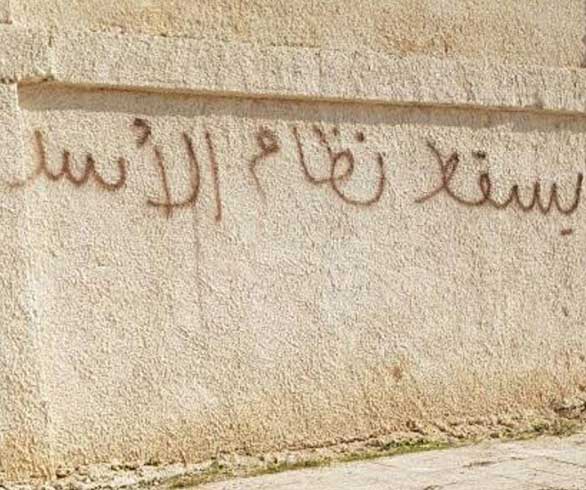 يسقط نظام الأسد